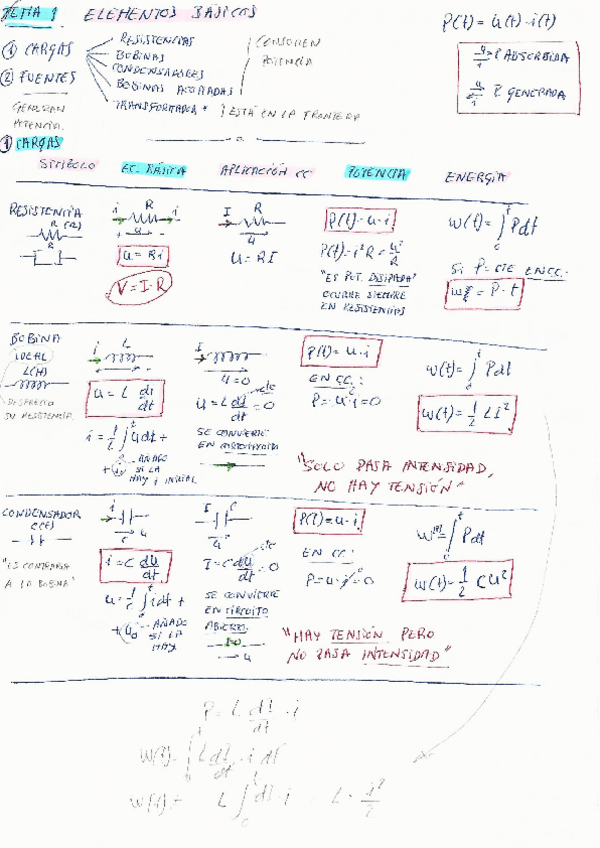 TEMA 1 ELEMENTOS BÁSICOS
P(t) = u(t) · i(t)
① CARGAS
② FUENTES
GENERAN
POTENCIA.
RESISTENCIAS
BOBINAS
CONDENSADORES
BOBINAS ACOPLADAS
TRANSFORMADOR *
CONSUMEN
POTENCIA
} ESTÁ EN LA FRONTERA
P ABSORBIDA
P GENERADA
① CARGAS
SÍMBOLO EC. BÁSICA APLICACIÓN CC POTENCIA ENERGÍA
RESISTENCIA
R (Ω)
i R i
u
u = Ri
V = I·R
I R
u
U = RI
P(t) = u·i
P(t) = i²R = u²/R
"ES POT. DISIPADA"
OCURRE SIEMPRE
EN RESISTENCIAS
w(t) = ∫₀ᵗ Pdt
SI P = CTE EN CC:
= P · t
BOBINA
IDEAL
L(H)
DESPRECIO
SU RESISTENCIA
i L
u = L di/dt
i = 1/L ∫ udt +
+ i₀ → AÑADO
SI LA
HAY i INICIAL
I
U = 0
U = L di/dt = 0
cte
SE CONVIERTE
EN CORTOCIRCUITO
P(t) = u·i
EN CC:
P = u·i = 0
w(t) = ∫₀ᵗ Pdt
w(t) = 1/2 LI²
"SOLO PASA INTENSIDAD,
NO HAY TENSIÓN"
CONDENSADOR
C(F)
"ES CONTRARIA
A LA BOBINA"
i
c u
i = C du/dt
u = 1/C ∫₀ᵗ idt +
+ u₀ → AÑADO
SI LA
HAY
I C
u
I = C du/dt = 0
cte
SE CONVIERTE
EN CIRCUITO
ABIERTO.
I=0
u
P(t) = u·i
EN CC:
P = u·i = 0
w(t) = ∫₀ᵗ Pdt
w(t) = 1/2 Cu²
"HAY TENSIÓN PERO
NO PASA INTENSIDAD"
P = L di/dt · i
W(t) = ∫₀ᵗ L di/dt · i dt
W(t) = L ∫₀ᵗ di · i = L · i²/2